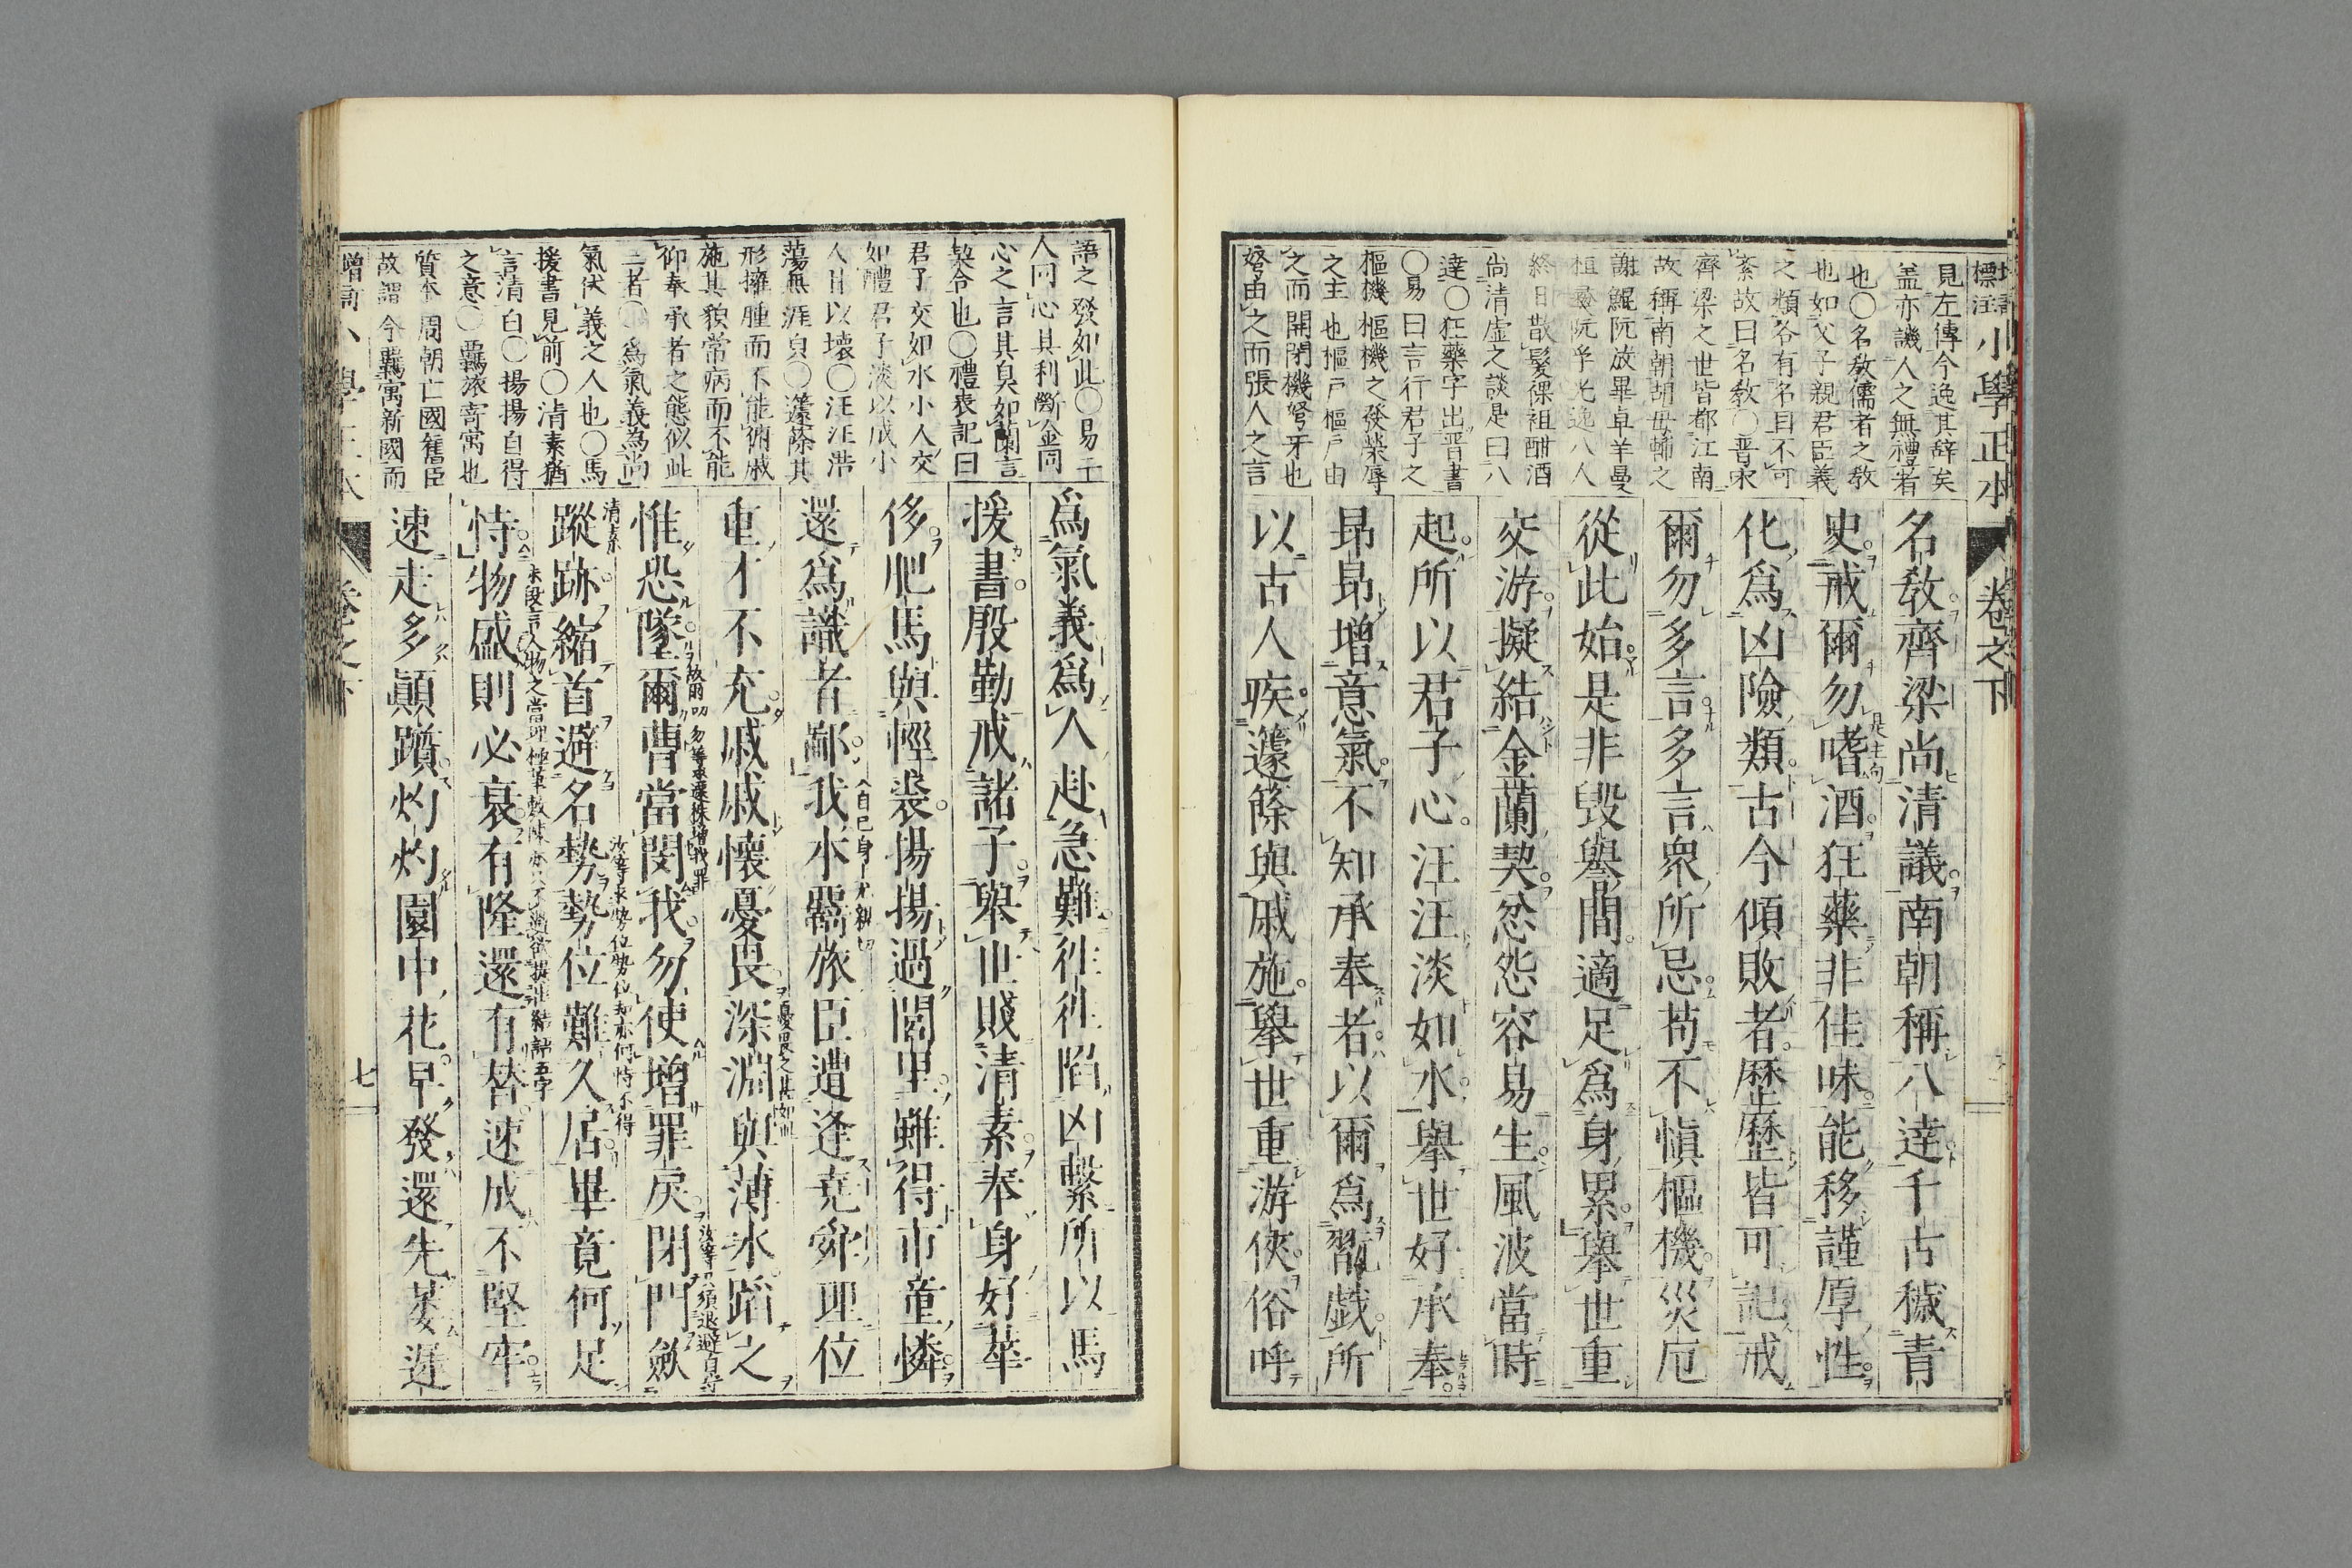 標註小學正本
卷之下
見左傳今逸其辭矣
盖亦譏人之無禮者
也〇名敎儒者之敎
也如父子親君臣義
之類各有名目不可
紊故曰名敎〇晋宋
齊梁之世皆都江南
故稱南朝胡毋輔之
謝鯤阮放畢卓羊曼
桓彝阮孚光逸八人
終日散髮倮袒酣酒
尚清虚之談是曰八
達〇狂藥字出晋書
〇易曰言行君子之
樞機樞機之發榮辱
之主也樞戸樞戸由
之而開閉機弩牙也
弩由之而張人之言
名敎齊梁尚清議南朝稱八達千古穢青
史戒爾勿嗜酒狂藥非佳味能移謹厚性
化爲凶險類古今傾敗者歷歷皆可記戒
爾勿多言多言衆所忌苟不愼樞機災厄
從此始是非毀譽間適足爲身累擧世重
交游擬結金蘭契忿怨容易生風波當時
起所以君子心汪汪淡如水擧世好承奉
昂昂增意氣不知承奉者以爾爲翫戲所
以古人疾籧篨與戚施擧世重游俠俗呼
語之發如此〇易二
人同心其利斷金同
心之言其臭如蘭言
契合也〇禮表記曰
君子交如水小人交
如醴君子淡以成小
人甘以壞〇汪汪浩
蕩無涯皃〇籧篨其
形擁腫而不能俯戚
施其貌常病而不能
仰奉承者之態似此
二者〇爲氣義為尚
氣伏義之人也〇馬
援書見前〇清素猶
言清白〇揚揚自得
之意〇羈旅寄寓也
質本周朝亡國舊臣
故謂今羈寓新國而
爲氣義爲人赴急難往往陷凶繫所以馬
援書殷勤戒諸子擧世賤清素奉身好華
侈肥馬與輕裘揚揚過閭里雖得市童憐
還爲識者鄙我本羈旅臣遭逢堯舜理位
重才不充戚戚懷憂畏深淵與薄冰蹈之
惟恐墜爾曹當閔我勿使增罪戾閉門斂
蹤跡縮首避名勢勢位難久居畢竟何足
恃物盛則必衰有隆還有替速成不堅牢
速走多顚躓灼灼園中花早發還先萎遲
七